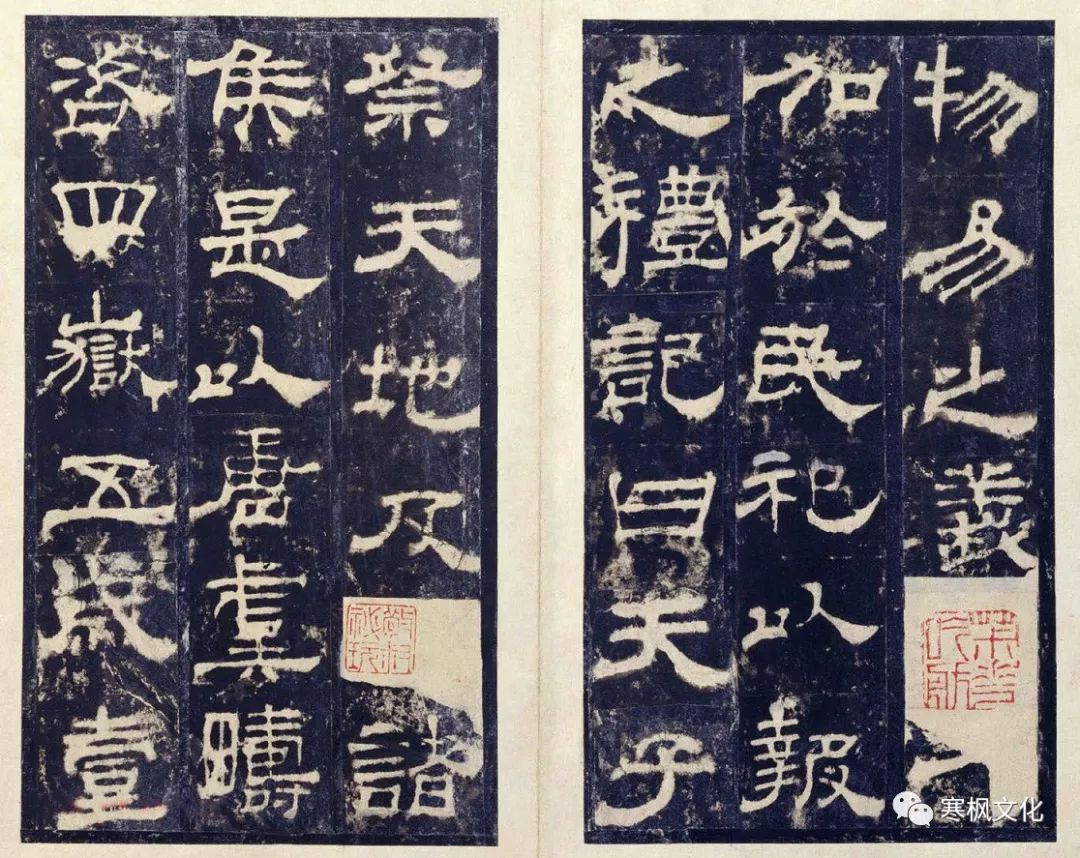 物易之義
加於民祀以報
之禮記曰天子
祭天地及諸
侯是以唐虞疇
咨四嶽五歲壹
寒枫文化